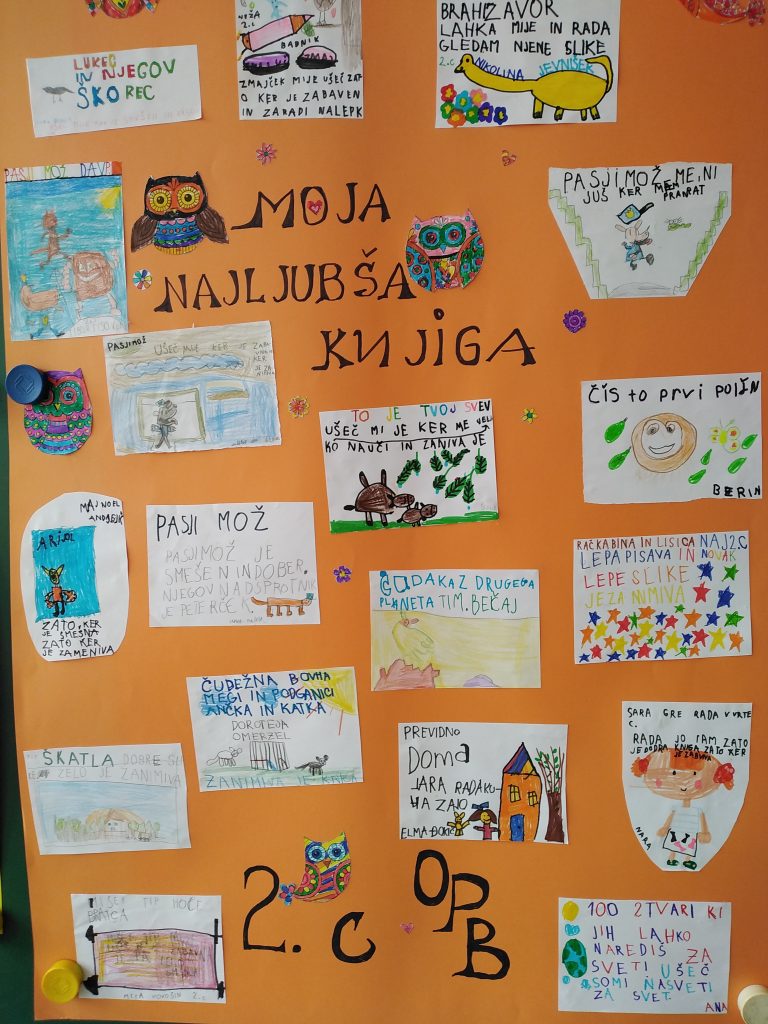 LUKEC
IN NJEGOV
ŠKOREC
NEŽA
2.c
BADNIK
ZMAJ
ZMAJČEK MI JE UŠEČ ZAT
O KER JE ZABAVEN
IN ZARADI NALEPK
BRAHIZAVOR
LAHKA MIJE IN RADA
GLEDAM NJENE SLIKE
2.c NIKOLINA JEVNIŠEK
PASJI MOŽ
MOJA
NAJLJUBŠA
KNJIGA
PASJI MOŽ MENI
JUŠ KER
PASJI MOŽ UŠEČ MIJE KER JE ZABA
KER
JE ZA
TO JE TVOJ SVEV
UŠEČ MI JE KER ME VEL
KO NAUČI IN ZANIVA JE
ČIS to PRVI POLJŽN
BERIN
MAJ NOEL
ARIJOL
ZATO, KER
JE SMEŠNA
ZATO KER
JE ZAMENIVA
PASJI MOŽ
PASJI MOŽ JE
SMEŠEN IN DOBER.
NJEGOV NADSPROTNIK
JE PETER ČEK.
GUDAKAZ DRUGEGA
PLANETA TIM. BEČAJ
RAČKABINA IN LISICA NAJ 2.C
LEPA PISAVA IN NOVAK
LEPE SLIKE
JE ZANIMIVA
ČUDEŽNA BOVHA
MEGI IN PODGANICI
ANČKA IN KATKA
DOROTEJA
OMERZEL
ZANIMIVA JE KNJIGA
PREVIDNO
Doma
LARA RADA KU-
HA ZAJO
ELMA
SARA GRE RADA V VRTE
C.
RADA JO IAM ZATO
JE DOBRA KNJIGA ZATO KER
JE ZABAVNA
NARA
ŠKATLA DOBRE
ZELO JE ZANIMIVA
MIŠEK TIP HOČE
BRATCA
2.c
2. c OPB
100 STVARI KI
JIH LAHKO
NAREDIŠ ZA
SVET! UŠEČ
SO MI NASVETI
ZA SVET.
ANA